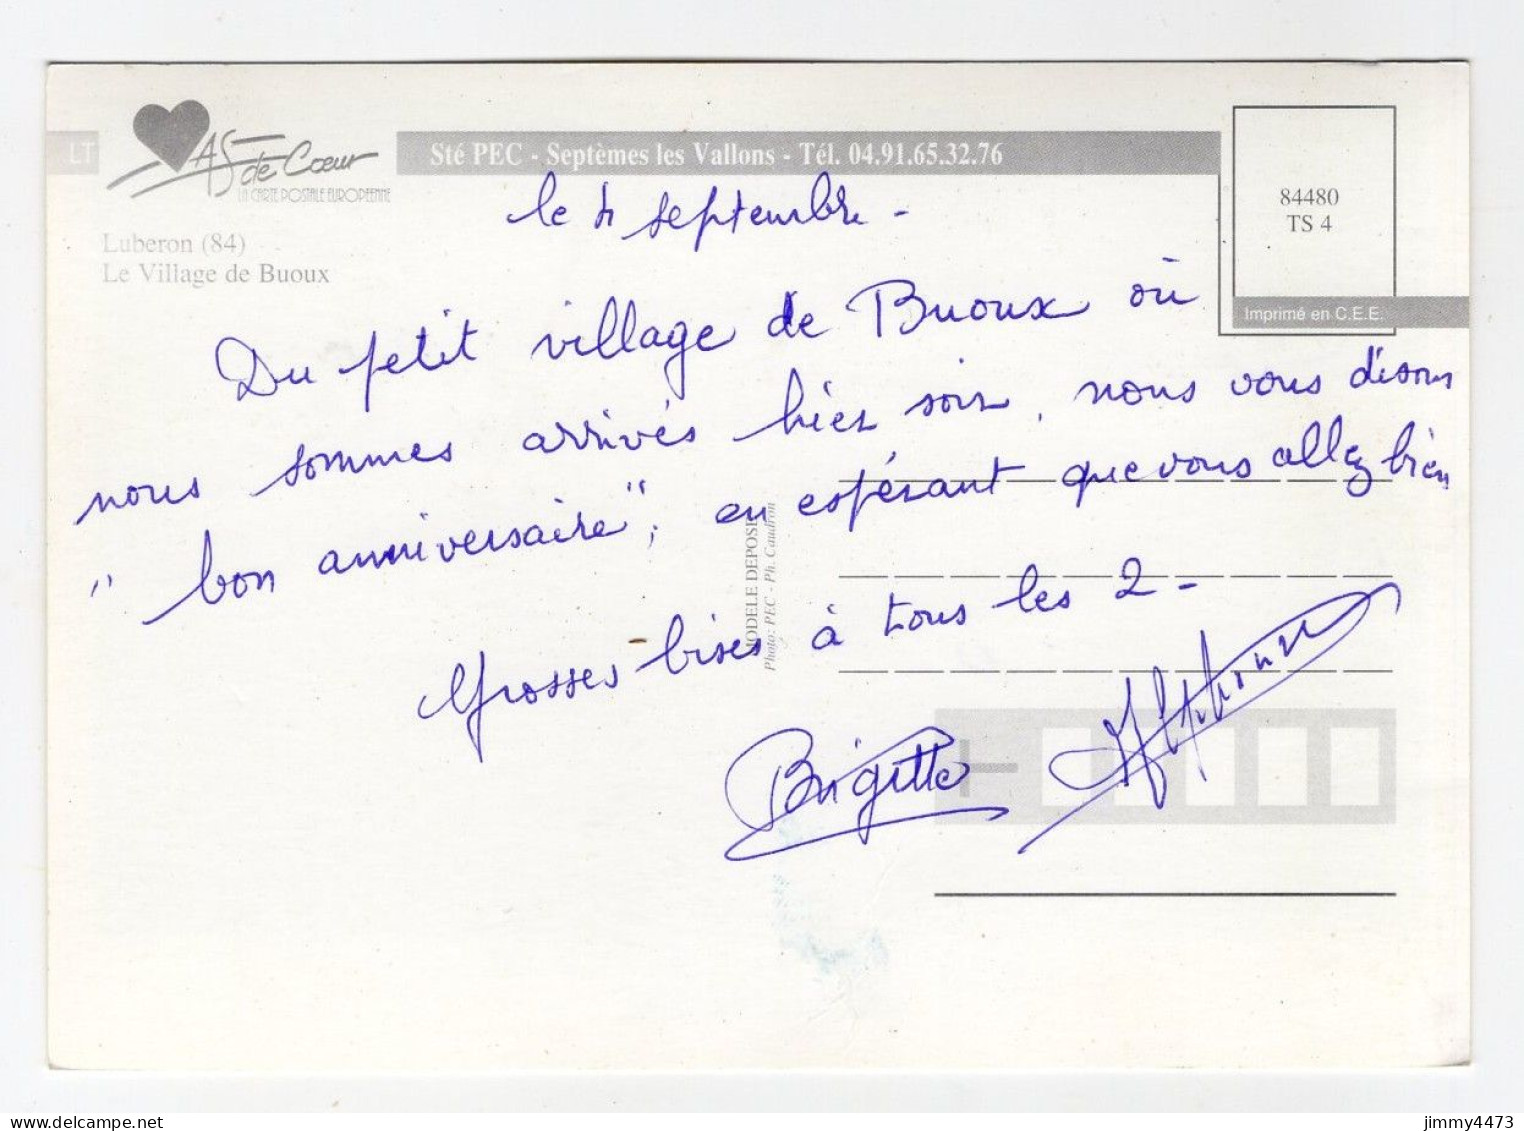 LT
As de Cœur
LA CARTE POSTALE EUROPEENNE
Sté PEC - Septèmes les Vallons - Tél. 04.91.65.32.76
84480
TS 4
Imprimé en C.E.E.
Luberon (84)
Le Village de Buoux
le 4 septembre -
Du petit village de Buoux où
nous sommes arrivés hier soir, nous vous disons
" bon anniversaire", en espérant que vous allez bien
Grosses bises à tous les 2 -
Brigitte Alphonse
MODELE DEPOSE
Photo: PEC - Ph. Caudron
jimmy4473